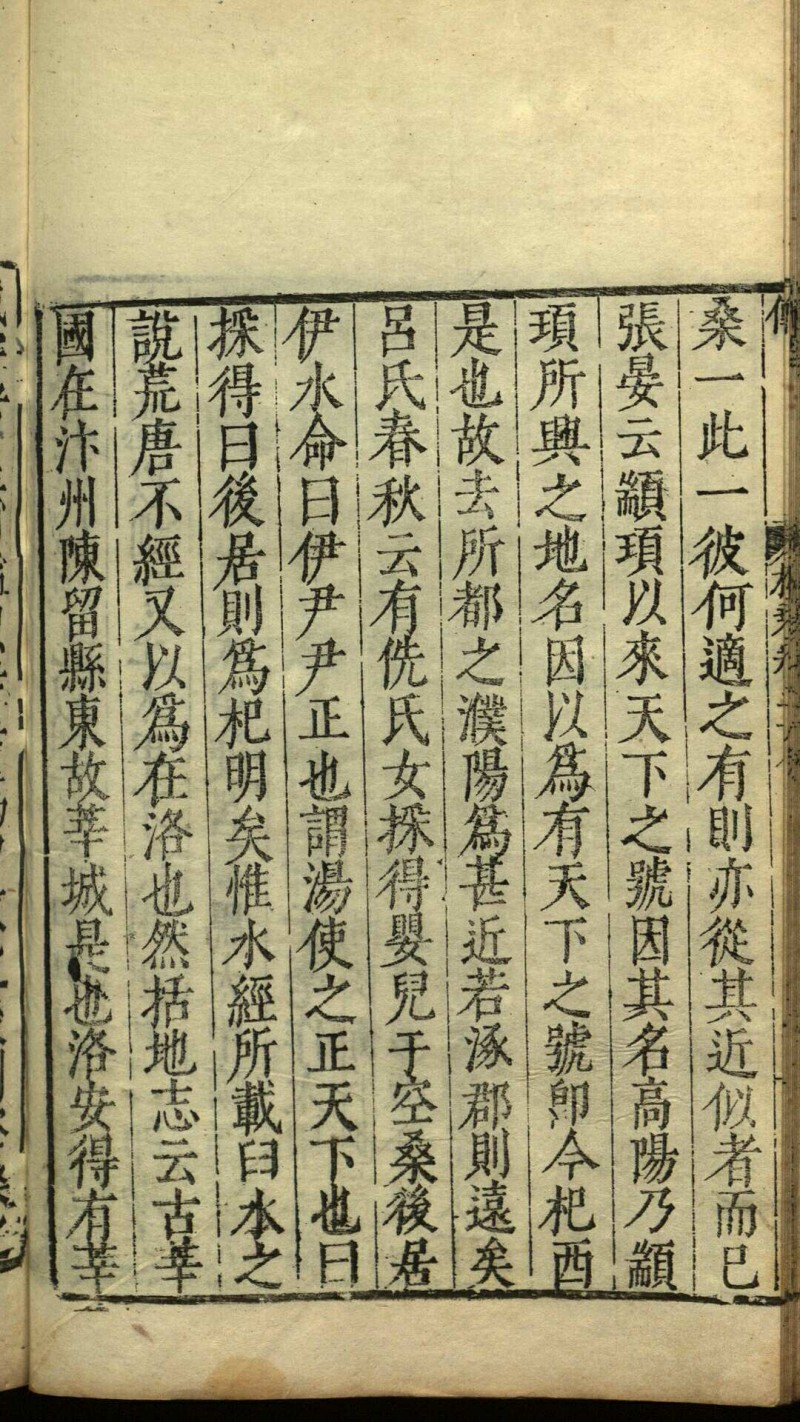 桑一此一彼何適之有則亦從其近似者而已
張晏云顓頊以來天下之號因其名高陽乃顓
頊所興之地名因以爲有天下之號卽今杞西
是也故去所都之濮陽爲甚近若涿郡則遠矣
呂氏春秋云有侁氏女採得嬰兒于空桑後居
伊水命曰伊尹尹正也謂湯使之正天下也曰
採得曰後居則爲杞明矣惟水經所載臼水之
說荒唐不經又以爲在洛也然括地志云古莘
國在汴州陳留縣東故莘城是也洛安得有莘